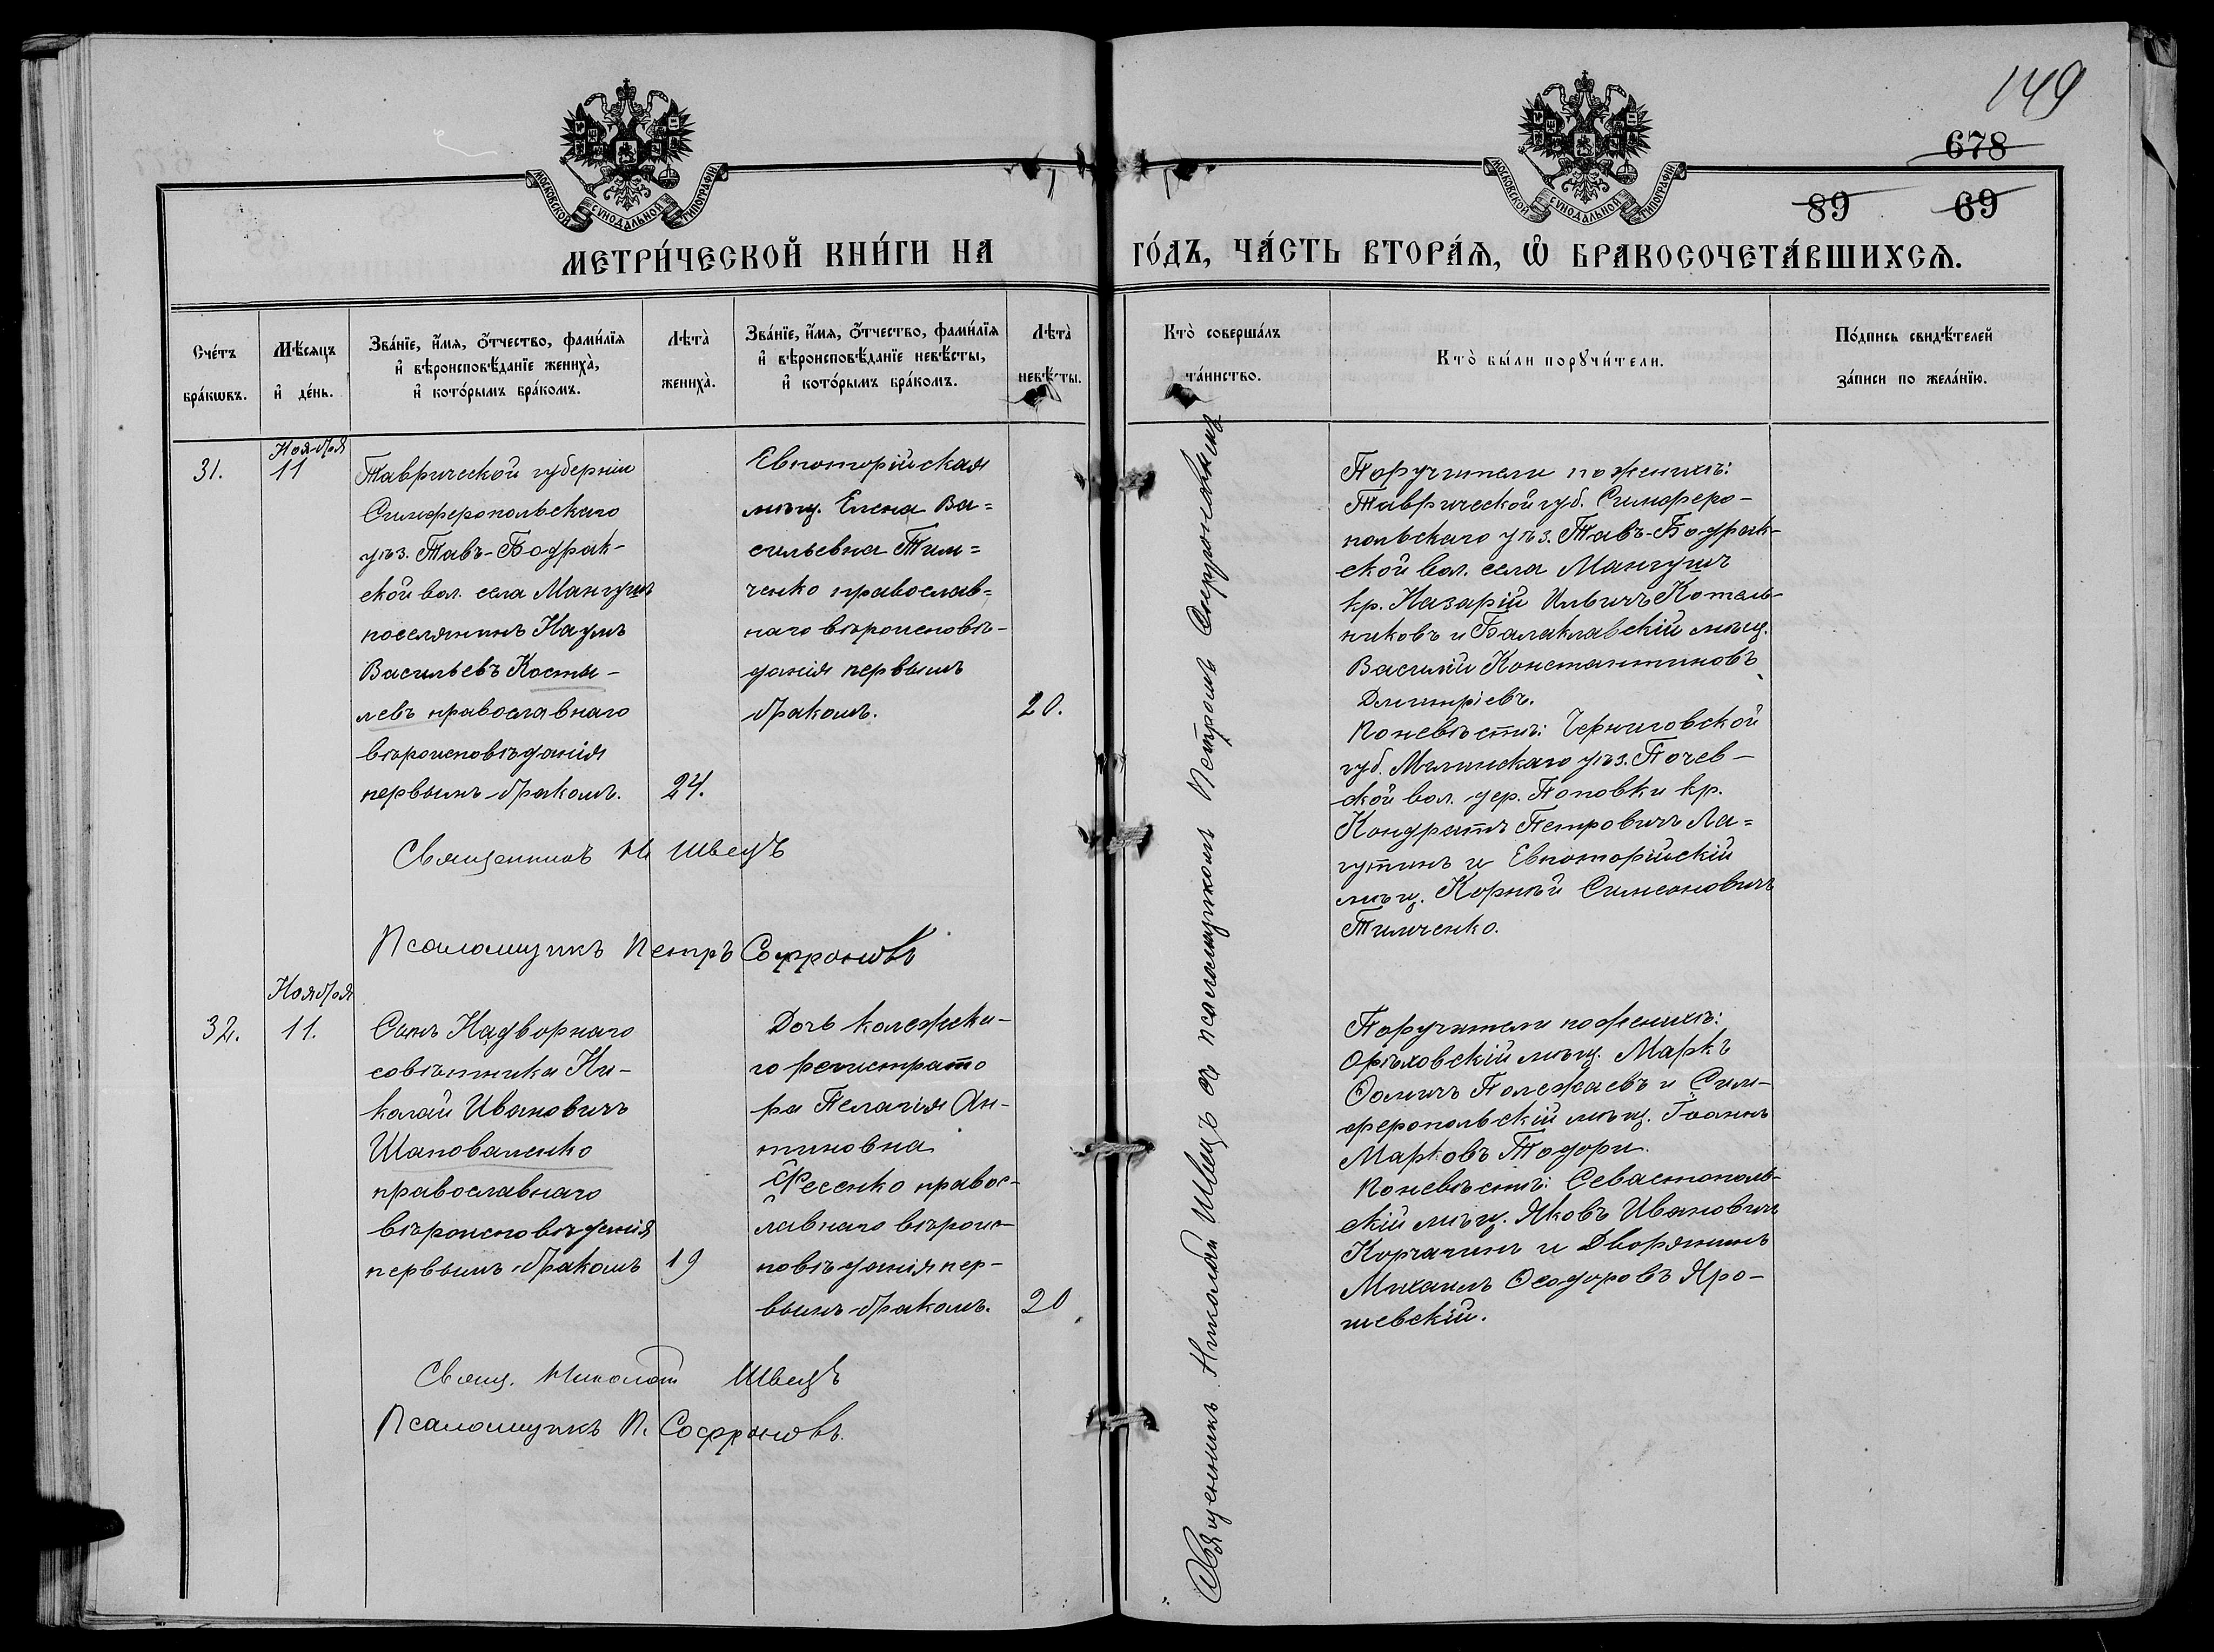 149
678
89 69
МОСКОВСКОЙ СѴНОДАЛЬНОЙ ТИПОГРАФІИ
МОСКОВСКОЙ СѴНОДАЛЬНОЙ ТИПОГРАФІИ
МЕТРИ́ЧЕСКОЙ КНИ́ГИ НА ГО́ДЪ, ЧА́СТЬ ВТОРА́Ѧ, Ѽ БРАКОСОЧЕТА́ВШИХСѦ.
Сче́тъ
бра́кѡвъ.
Мѣ́сяцъ
и҆ де́нь.
Зва́нїе, и҆́мя, ѻ҆́тчество, фами́лїя
и҆ вѣроисповѣ́данїе жениха̀,
и҆ кото́рымъ бра́комъ.
Лѣта̀
жениха̀.
Зва́нїе, и҆́мя, ѻ҆́тчество, фами́лїя
и҆ вѣроисповѣ́данїе невѣ́сты,
и҆ кото́рымъ бра́комъ.
Лѣта̀
невѣ́сты.
Кто̀ соверша́лъ
та́инство.
Кто̀ бы́ли порꙋчи́тели.
По́дпись свидѣ́телей
за́писи по жела́нїю.
31.
Ноября
11
Таврической губерніи
Симферопольскаго
уѣз. Тавъ-Бодрак-
ской вол. села Мангушъ
поселянинъ Наумъ
Васильевъ Косты-
левъ православнаго
вѣроисповѣданія
первымъ бракомъ.
24.
Евпаторійская
мѣщ. Елена Ва=
сильевна Тим=
ченко православ=
наго вѣроисповѣ-
данія первымъ
бракомъ.
20.
Священникъ Н Швецъ
Псаломщикъ Петръ Софроновъ
Священникъ Николай Швецъ съ псаломщикомъ Петромъ Софроновымъ
Поручители по женихѣ:
Таврической губ. Симферо-
польскаго уѣз. Тавъ-Бодрак-
ской вол. села Мангушъ
кр. Назарій Ильичъ Котель-
никовъ и Балаклавскій мѣщ.
Василій Константиновъ
Дмитріевъ.
По невѣстѣ: Черниговской
губ. Мглинскаго уѣз. Почев-
ской вол. дер. Поповки кр.
Кондратъ Петровичъ Ла=
гутинъ и Евпаторійскій
мѣщ. Корнѣй Симеоновичъ
Тимченко.
Ноября
32.
11.
Сынъ Надворнаго
совѣтника Ни-
колай Ивановичъ
Шаповаленко
православнаго
вѣроисповѣданія
первымъ бракомъ
19
Дочь колежска-
го регистрато
ра Пелагія Ан-
тиновна
Фесенко правос-
лавнаго вѣроис-
повѣданія пер-
вымъ бракомъ.
20
Свящ. Николай Швецъ
Псаломщикъ П. Софроновъ.
Поручители по женихѣ:
Орѣховскій мѣщ. Маркъ
Ѳомичъ Полежаевъ и Сим-
феропольскій мѣщ. Іоаннъ
Марковъ Тодори.
По невѣстѣ: Севастополь-
скій мѣщ. Яковъ Ивановичъ
Корчагинъ и Дворянинъ
Михаилъ Ѳеодоровъ Яро-
шевскій.